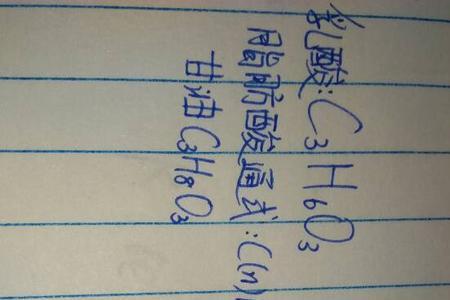 乳酸:C₃H₆O₃
脂肪酸通式:C(n)
甘油C₃H₈O₃